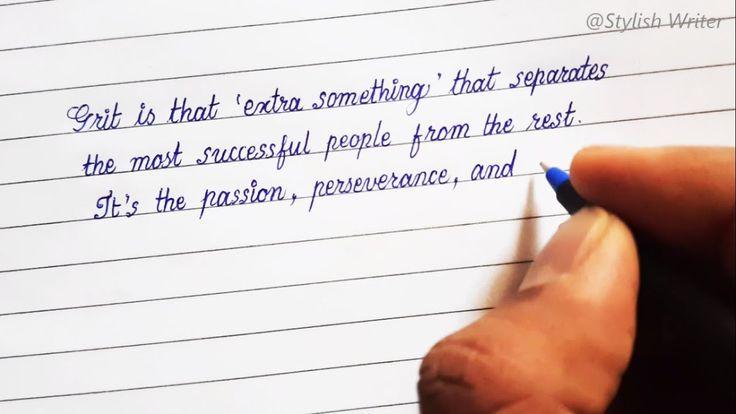 @Stylish Writer
Grit is that 'extra something,' that separates
the most successful people from the rest.
It's the passion, perseverance, and